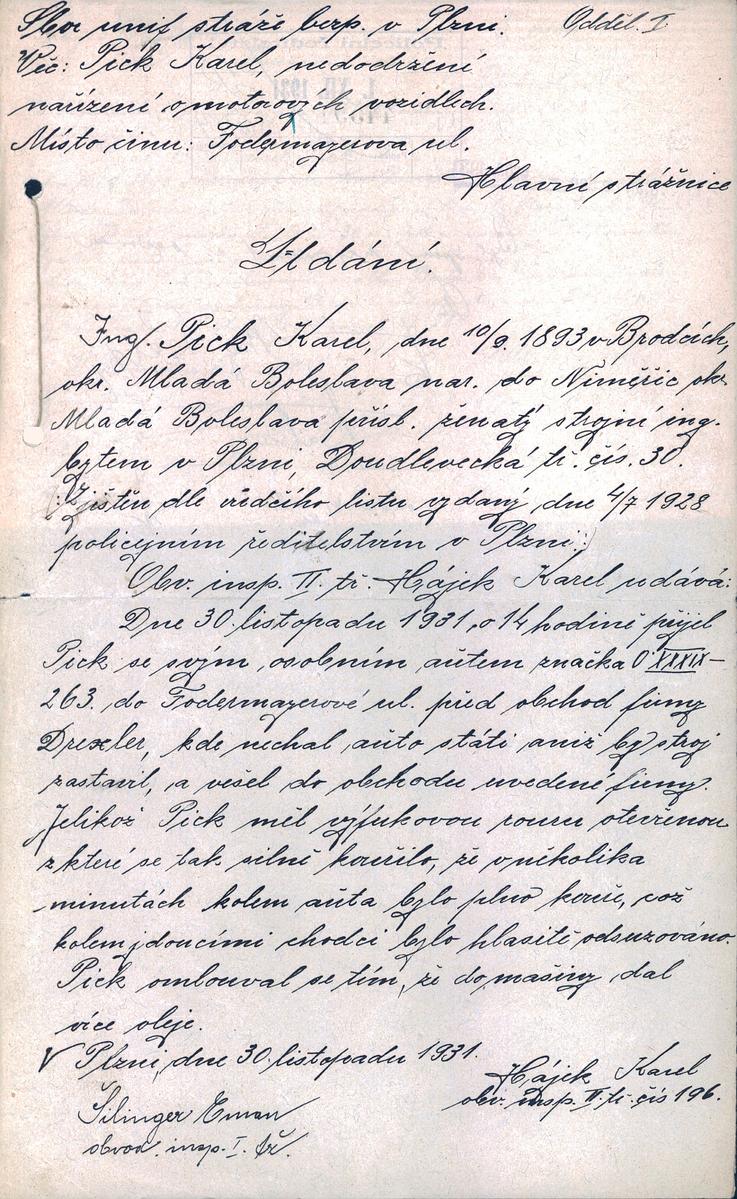 Sbor unif. stráže bezp. v Plzni. Odděl. I
Věc: Pick Karel, nedodržení
nařízení o motorových vozidlech.
Místo činu: Fodermayerova ul.
Hlavní strážnice
Udání.
Ing. Pick Karel, dne 10/9. 1893 v Brodcích,
okr. Mladá Boleslava nar. do Niměřic okr.
Mladá Boleslava přísl. ženatý strojní ing.
bytem v Plzni, Doudlevecká tř. čís. 30.
/:Zjištěn dle vůdčího listu vydaný dne 4/7 1928
policejním ředitelstvím v Plzni:/
Obv. insp. II. tř. Hájek Karel udává:
Dne 30. listopadu 1931, o 14 hodině přijel
Pick se svým osobním autem značka O XXXIX–
263. do Fodermayerové ul. před obchod firmy
Drexler, kde nechal auto státi aniž by stroj
zastavil, a vešel do obchodu uvedené firmy.
Jelikož Pick měl výfukovou rouru otevřenou
z které se tak silně kouřilo, že v několika
minutách kolem auta bylo plno kouře, což
kolem jdoucími chodci bylo hlasitě odsuzováno.
Pick omlouval se tím, že do mašiny dal
více oleje.
V Plzni, dne 30. listopadu 1931.
Hájek Karel
obv. insp. II. tř. čís 196.
Šilinger Eman
obvod. insp. I. tř.